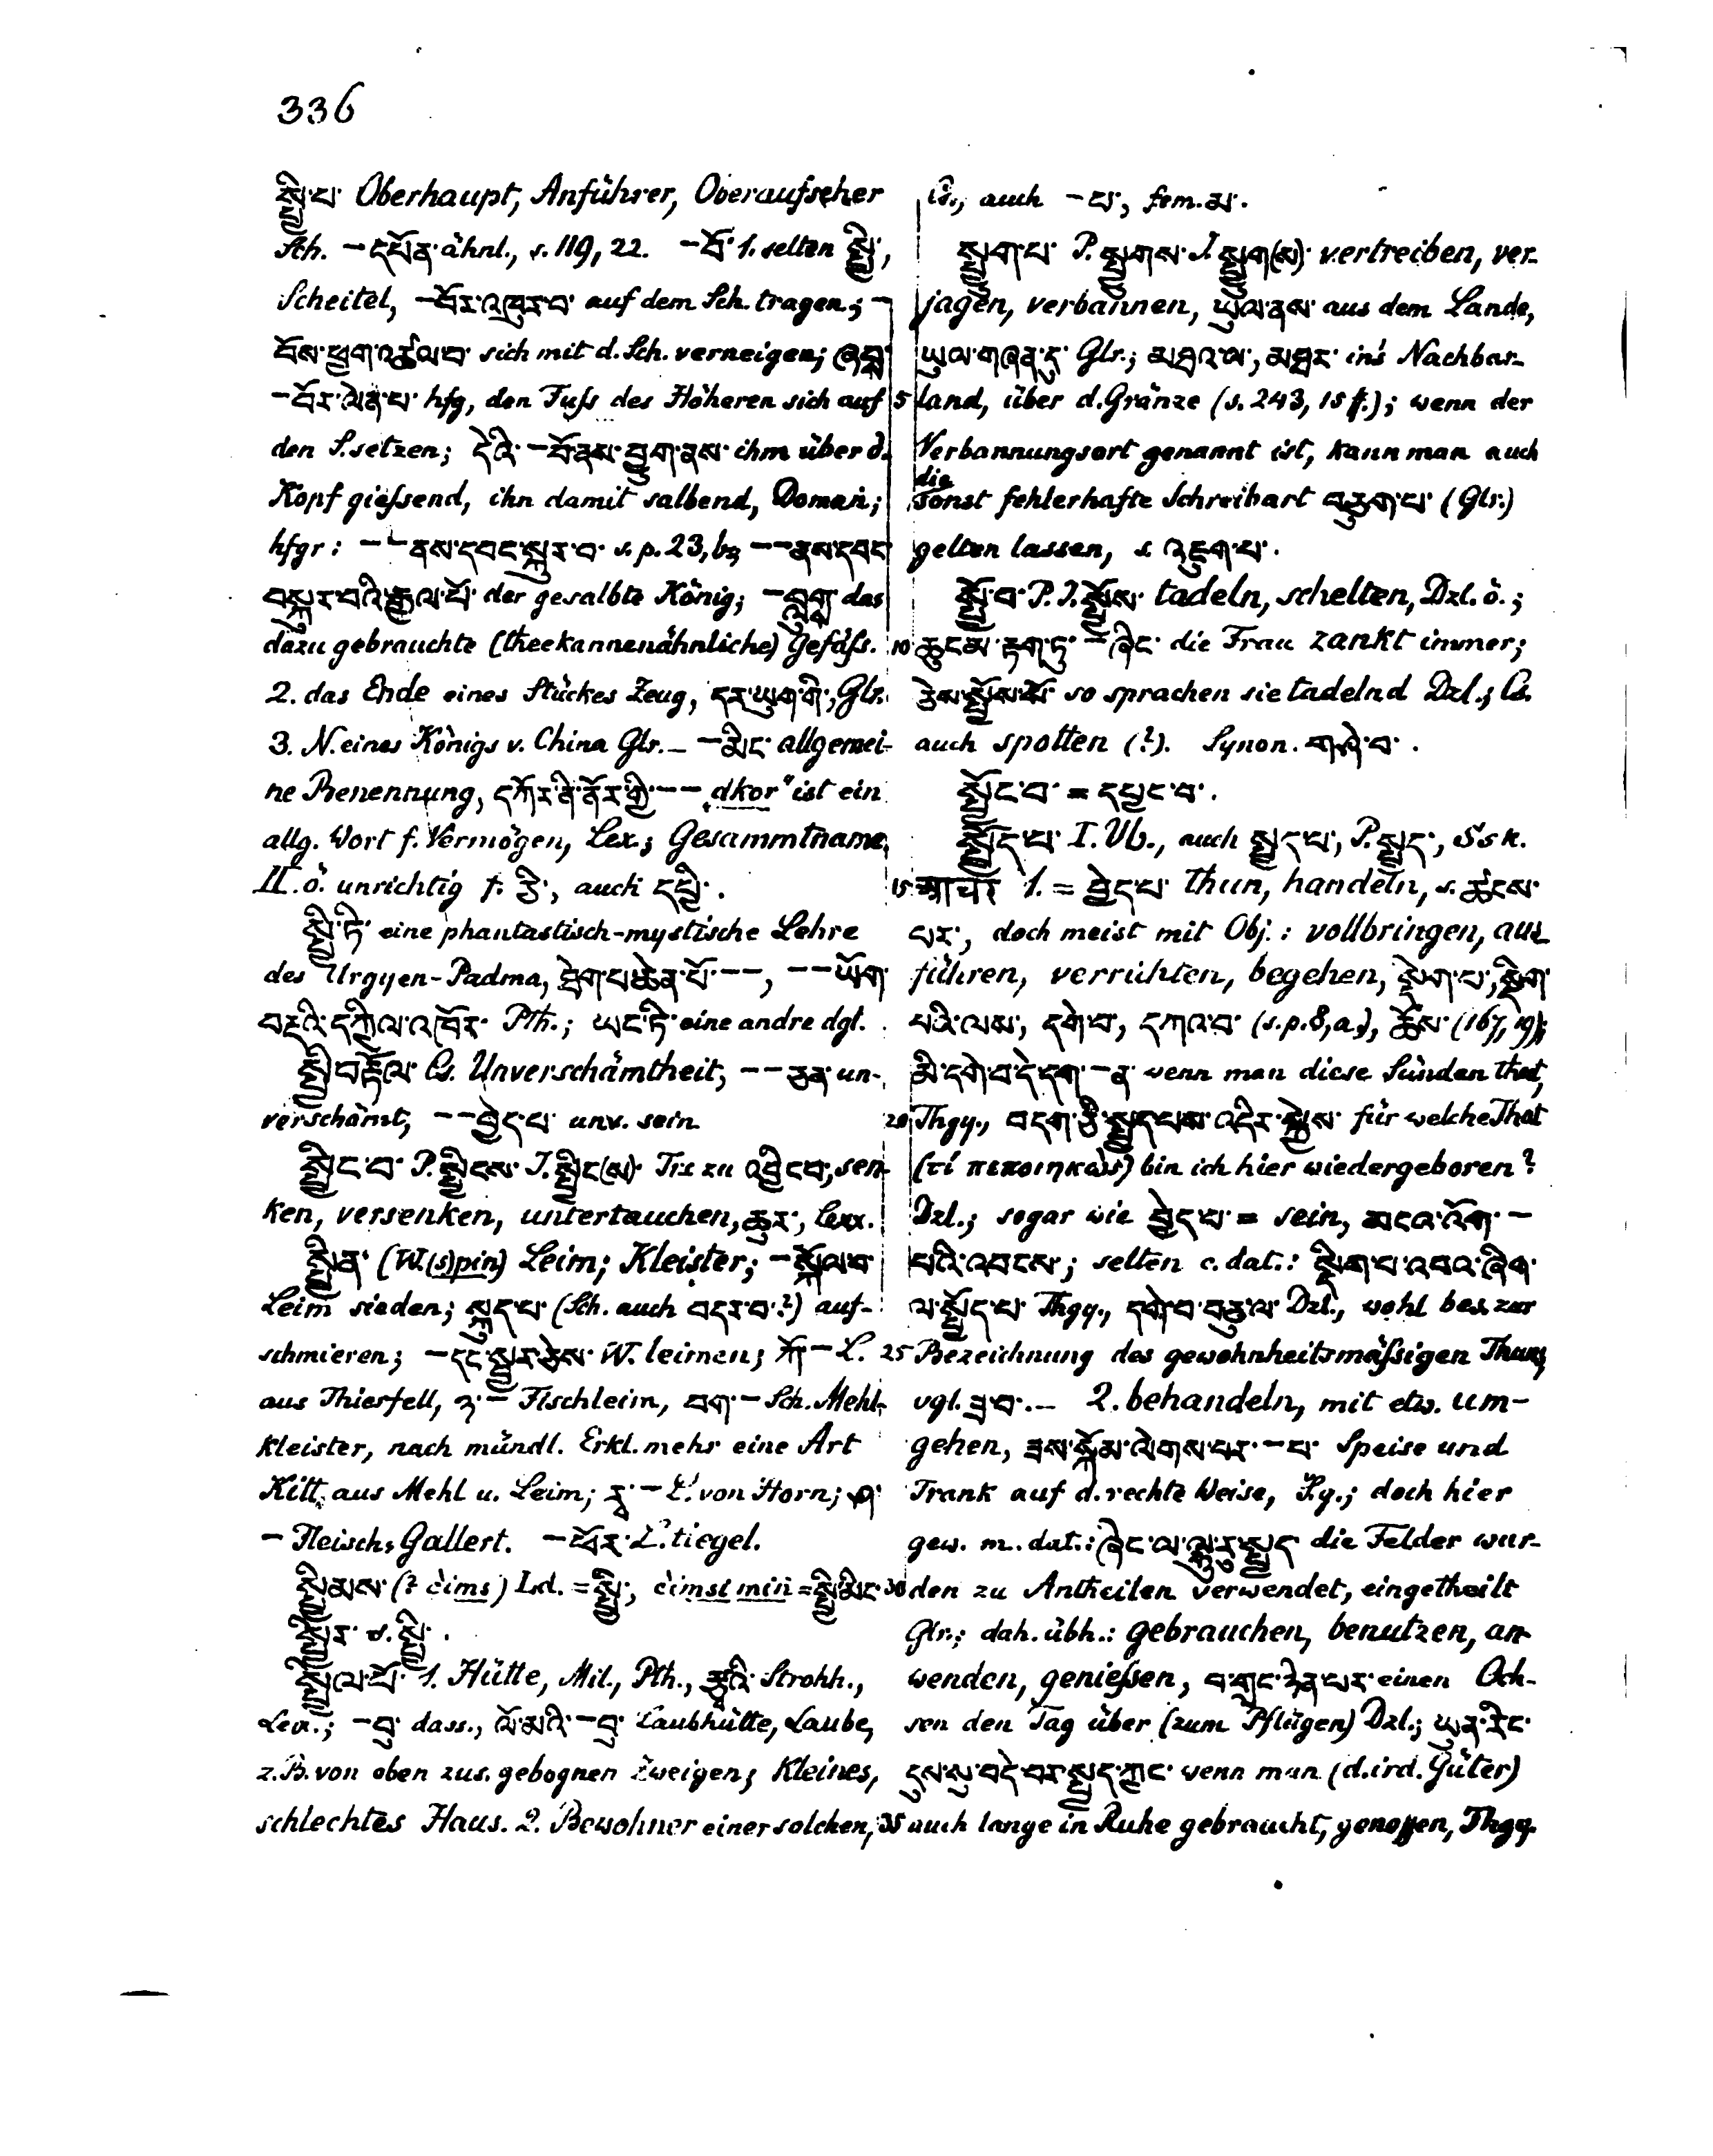 336
སྤྱི་པ་ Oberhaupt, Anführer, Oberaufseher
Sch. –དཔོན་ ähnl., s. 119, 22. –བོ་ 1. selten སྤྱི་,
Scheitel, –བོར་འཁུར་བ་ auf dem Sch. tragen; –
བོས་ཕྱག་འཚལ་བ་ sich mit d. Sch. verneigen; ཞབས་
–བོར་ལེན་པ་ hfg, den Fuſs des Höheren sich auf
den S. setzen; དེའི་ –བོ་ནས་བླུག་ནས་ ihm über d.
Kopf gieſsend, ihn damit salbend, Doman;
hfgr: –– ནས་དབང་སྐུར་བ་ s. p. 23, b; –– ནས་དབང་
བསྐུར་བའི་རྒྱལ་པོ་ der gesalbte König; –བླུགས་ das
dazu gebrauchte (theekannenähnliche) Gefäſs.
2. das Ende eines Stückes Zeug, དར་ཡུག་གི་, Glr.
3. N. eines Königs v. China Glr. – –མིང་ allgemei-
ne Benennung, དཀོར་ནི་ནོར་གྱི་ –– „dkor“ ist ein
allg. Wort f. Vermögen, Lex.; Gesammtname.
II. ö. unrichtig f. ཅི་, auch དཔྱི་.
སྤྱི་ཏི་ eine phantastisch-mystische Lehre
des Urgyen-Padma, ཐེག་པ་ཆེན་པོ་ ––, –– ཡོག་
བརྡའི་དཀྱིལ་འཁོར་ Pth.; ཡང་ཏི་ eine andre dgl.
སྤྱི་བརྟོལ་ Cs. Unverschämtheit, –– ཅན་ un-
verschämt, –– བྱེད་པ་ unv. sein
སྤྱིང་བ་ P. སྤྱིངས་ I. སྤྱིང(ས)་ Trs zu འབྱིང་བ་, sen-
ken, versenken, untertauchen, ཆུར་, Lexx.
སྤྱིན་ (W. (s)pin) Leim; Kleister; –སྐོལ་བ་
Leim sieden; སྐུད་པ་ (Sch. auch བདར་བ་?) auf-
schmieren; –དང་སྦྱར་ཅེས་ W. leimen; ཀོ་ – L.
aus Thierfell, ཉ་ – Fischleim, བག་ – Sch. Mehl-
kleister, nach mündl. Erkl. mehr eine Art
Kitt, aus Mehl u. Leim; རྭ་ – L. von Horn; ཤ་
– Fleisch-Gallert. –ཕོར་ L. tiegel.
སྤྱིམས་ (? c̀ims) Ld. = སྤྱི་, c̀imsi miṅ = སྤྱི་མིང་
སྤྱིར་ s. སྤྱི་.
སྤྱིལ་པོ་ 1. Hütte, Mil., Pth., རྩྭའི་ Strohh.,
Lex.; –བུ་ dass., ལོ་མའི་ –བུ་ Laubhütte, Laube,
z. B. von oben zus. gebognen Zweigen; kleines,
schlechtes Haus. 2. Bewohner einer solchen,
Cs., auch –པ་, fem. མ་.
སྤྱུག་པ་ P. སྤྱུགས་ I. སྤྱུག(ས)་ vertreiben, ver-
jagen, verbannen, ཡུལ་ནས་ aus dem Lande,
ཡུལ་གཞན་དུ་ Glr.; མཐའ་ལ་, མཐར་ in's Nachbar-
5 land, über d. Gränze (s. 243, 15 ff.); wenn der
Verbannungsort genannt ist, kann man auch
die sonst fehlerhafte Schreibart བཅུག་པ་ (Glr.)
gelten lassen, s. འཇུག་པ་.
སྤྱོ་བ་ P. I. སྤྱོས་ tadeln, schelten, Dzl. ö.;
10 ཆུང་མ་རྟག་ཏུ་ –ཞིང་ die Frau zankt immer;
ཅེས་སྤྱོས་སོ་ so sprachen sie tadelnd Dzl.; Cs.
auch spotten (?). Synon. གཤེ་བ་.
སྤྱོང་བ་ = དཔྱང་བ་.
སྤྱོད་པ་ I. Vb., auch སྤྱད་པ་, P. སྤྱད་, Ssk.
15 1. = བྱེད་པ་ thun, handeln, s. ཚངས་
པར་, doch meist mit Obj.: vollbringen, aus-
führen, verrichten, begehen, སྡིག་པ་, སྡིག་
པའི་ལས་, དགེ་བ་, དཀའ་བ་ (s. p. 8, a,), ཆོས་ (167, 19);
མི་དགེ་བ་དེ་དག་ –ན་ wenn man diese Sünden that,
20 Thgy., བདག་ཅི་སྤྱད་པས་འདིར་སྐྱེས་ für welche That
(τί πεποιηκώς) bin ich hier wiedergeboren?
Dzl.; sogar wie བྱེད་པ་ = sein, མངའ་འོག་ –
པའི་འབངས་; selten c. dat.: སྡིག་པ་འབའ་ཞིག་
ལ་སྤྱོད་པ་ Thgy., དགེ་བ་བཅུ་ལ་ Dzl., wohl bes. zur
25 Bezeichnung des gewohnheitsmäſsigen Thuns,
vgl. ཟ་བ་. – 2. behandeln, mit etw. um-
gehen, ཟས་སྐོམ་ལེགས་པར་ –པ་ Speise und
Trank auf d. rechte Weise, S.g.; doch hier
gew. m. dat.: ཞིང་ལ་སྐལ་དུ་སྤྱད་ die Felder wur-
30 den zu Antheilen verwendet, eingetheilt
Glr.; dah. übh.: gebrauchen, benutzen, an-
wenden, genieſsen, བ་གླང་ཉིན་པར་ einen Och-
sen den Tag über (zum Pflügen) Dzl.; ཡུན་རིང་
དུས་སུ་བདེ་བར་སྤྱད་ཀྱང་ wenn man (d. ird. Güter)
35 auch lange in Ruhe gebraucht, genossen, Thgy.